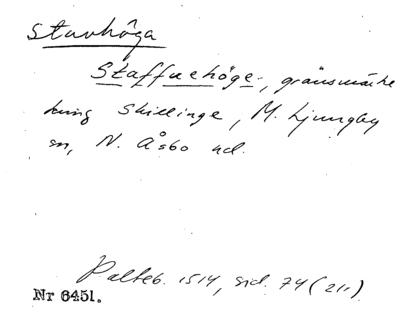 Stavhöga
Staffuehöge, gränsmärke
kring Skillinge, M. Ljungby
sn, N. Åsbo hd.
Palteb. 1514, sid. 74 (211)
Nr 6451.